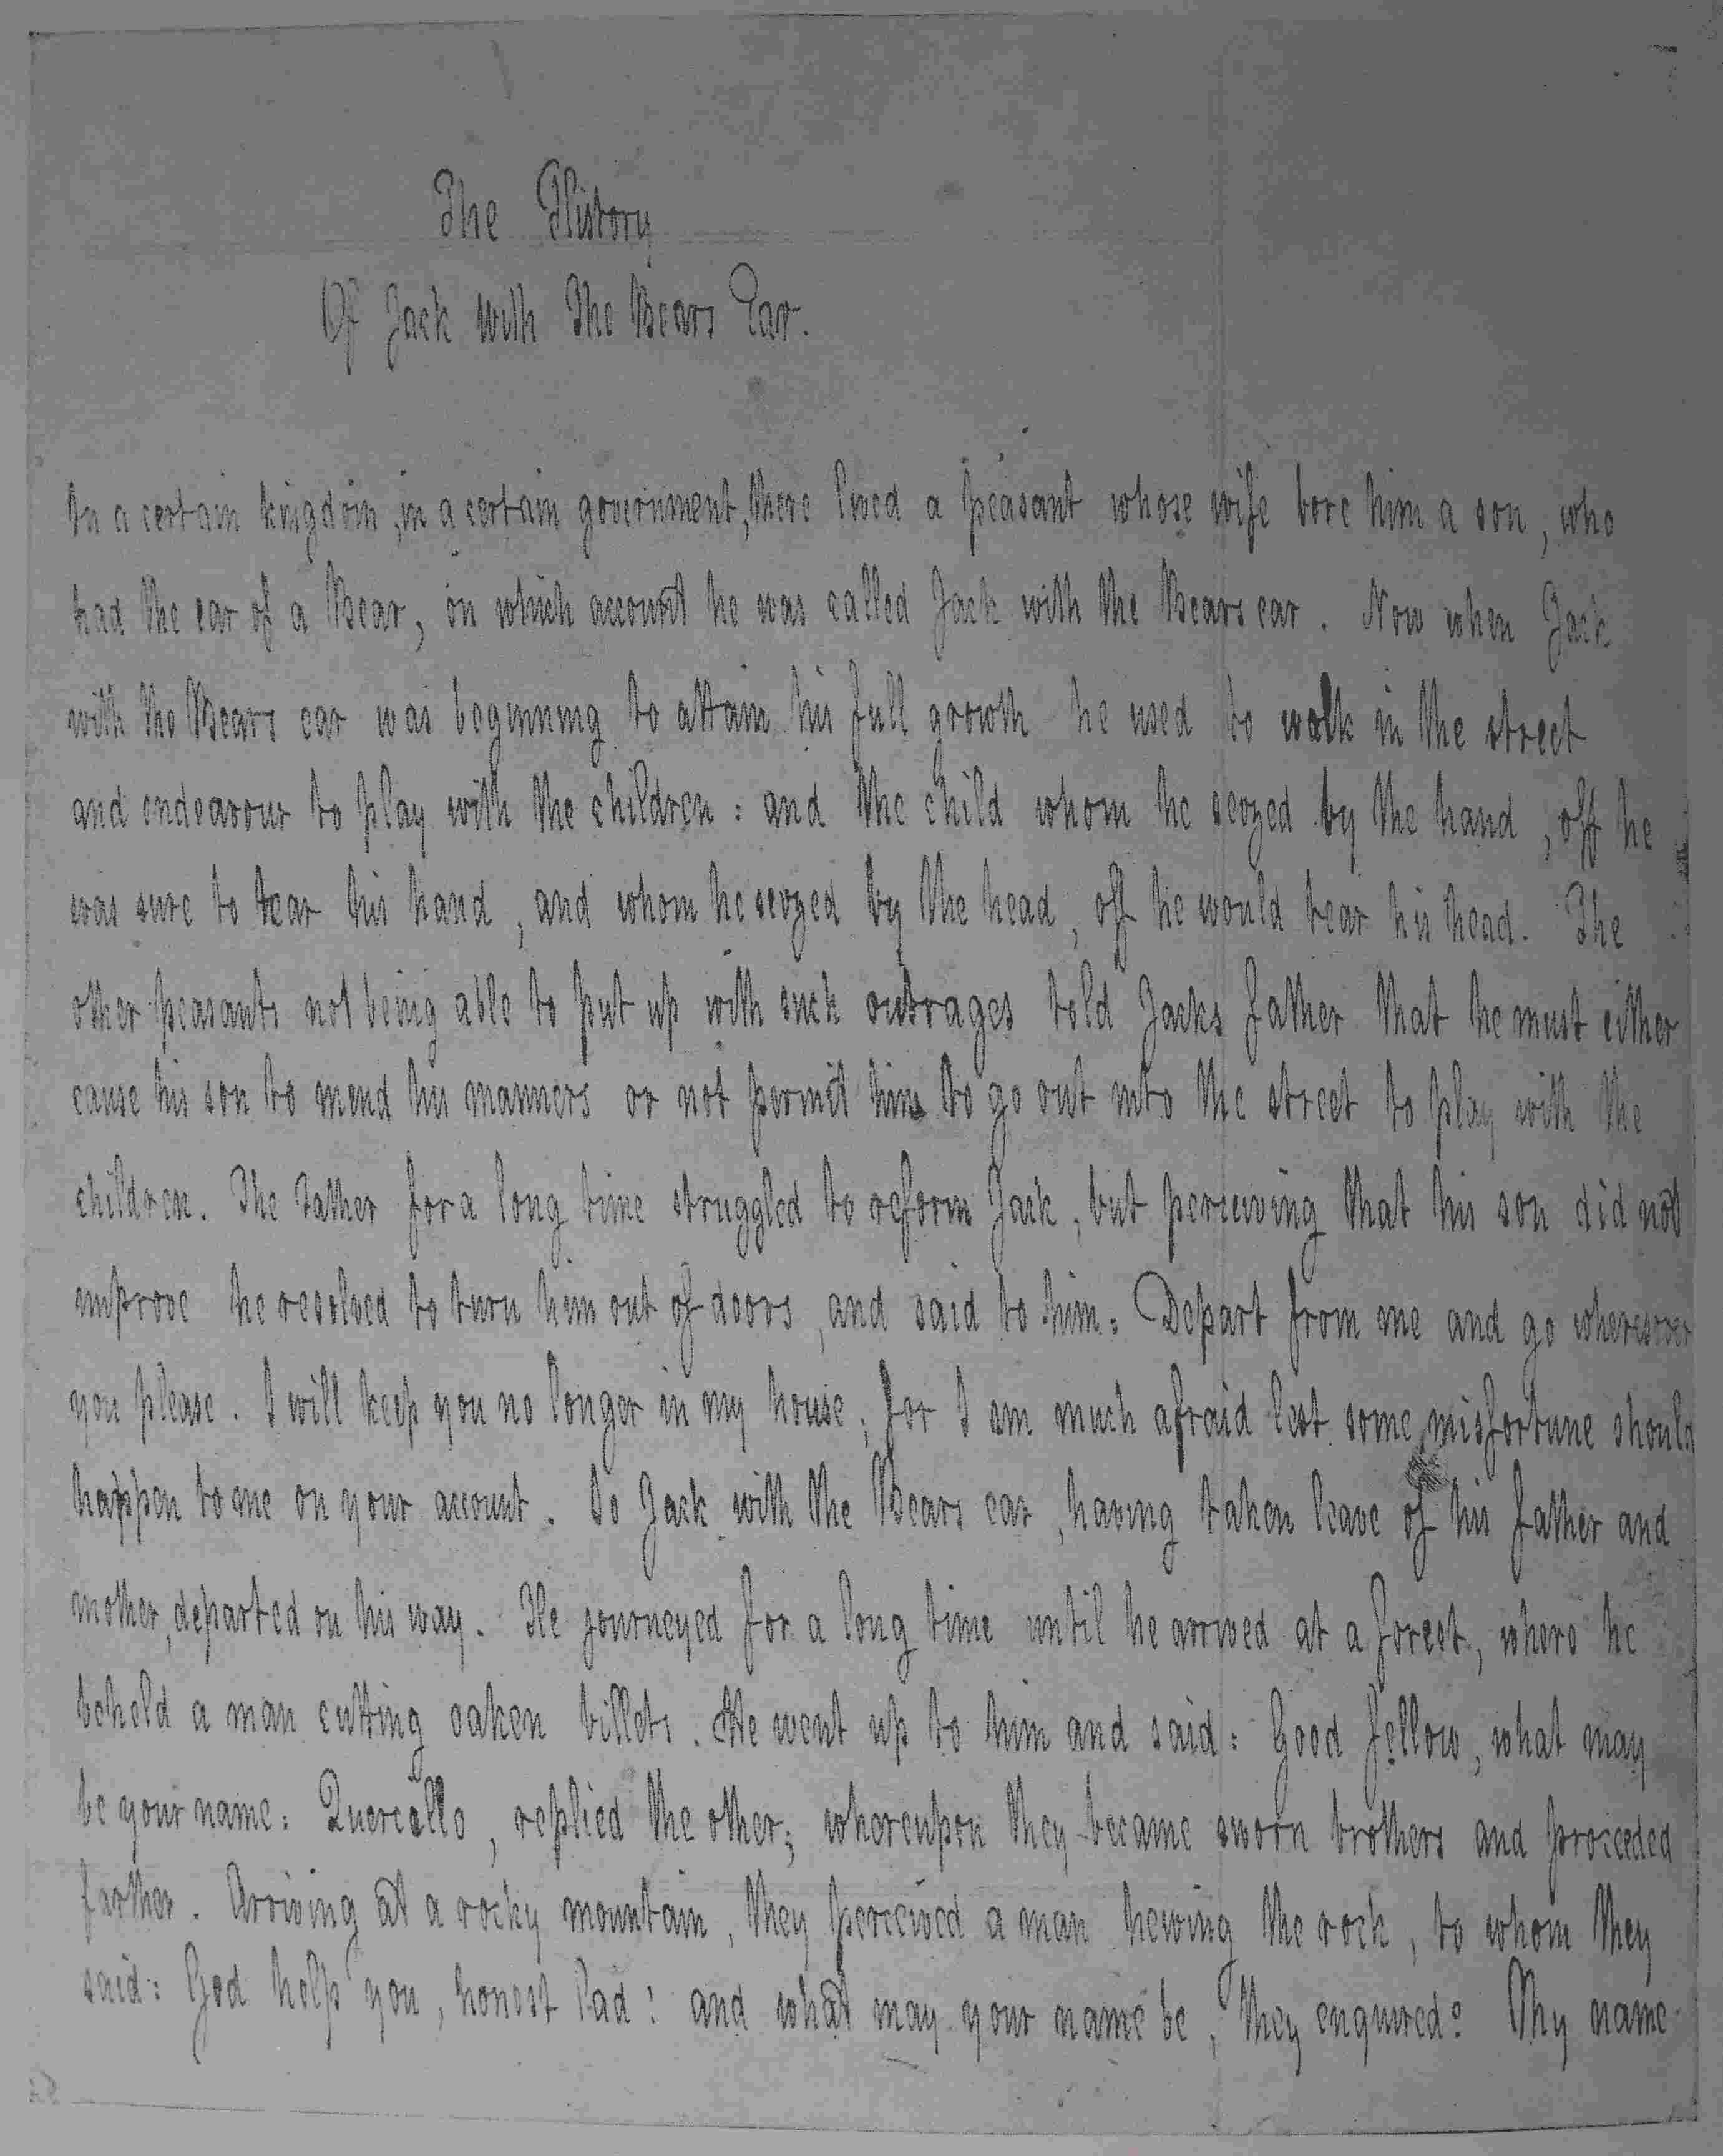 The History
Of Jack With The Bears Ear.
In a certain kingdom, in a certain government, there lived a peasant whose wife bore him a son, who
had the ear of a Bear, on which account he was called Jack with the Bears ear. Now when Jack
with the Bears ear was beginning to attain his full growth he used to walk in the street
and endeavour to play with the children: and the child whom he seozed by the hand, off he
was sure to tear his hand, and whom he seozed by the head, off he would tear his head. The
other peasants not being able to put up with such outrages told Jacks father that he must either
cause his son to mend his manners or not permit him to go out into the street to play with the
children. The father for a long time struggled to reform Jack, but perceiving that his son did not
improve he resolved to turn him out of doors, and said to him: Depart from me and go wheresoever
you please. I will keep you no longer in my house; for I am much afraid lest some misfortune should
happen to me on your account. So Jack with the Bears ear, having taken leave of his father and
mother, departed on his way. He journeyed for a long time until he arrived at a forest, where he
beheld a man cutting oaken billets. He went up to him and said: Good fellow, what may
be your name: Quercillo, replied the other; whereupon they became sworn brothers and proceeded
farther. Arriving at a rocky mountain, they perceived a man hewing the rock, to whom they
said: God help you, honest lad! and what may your name be, they enquired? My name